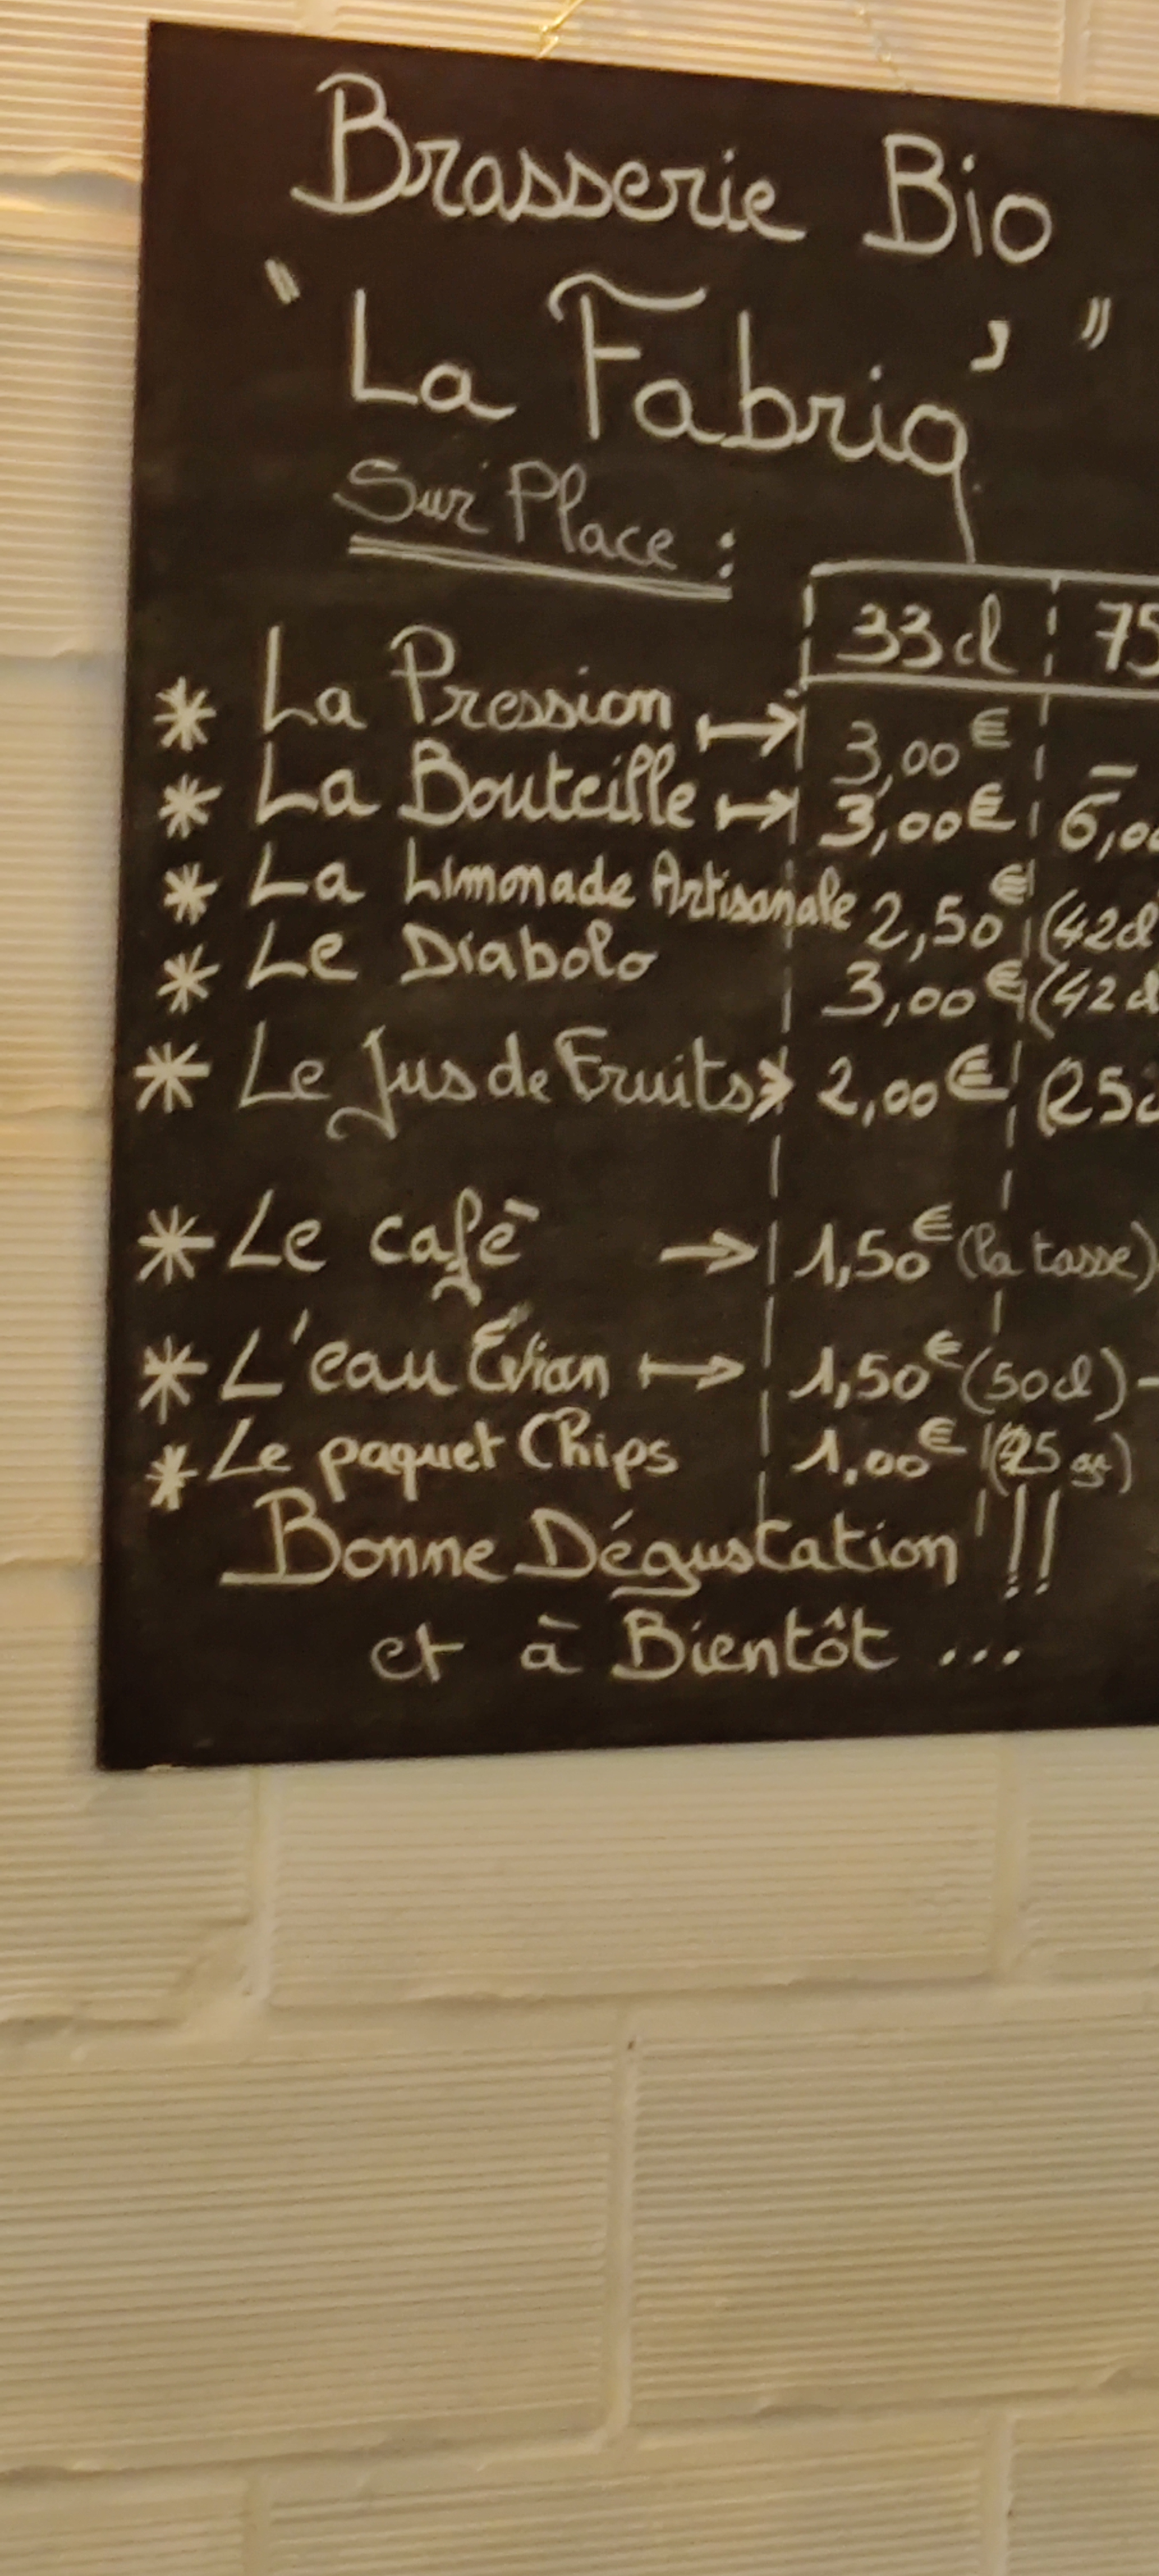 Brasserie Bio
"La Fabriq' "
Sur Place :
33cl 75
* La Pression → 3,00€ –
* La Bouteille → 3,00€ 6,00
* La Limonade Artisanale 2,50€ (42cl
* Le Diabolo 3,00€ (42cl
* Le Jus de Fruits > 2,00€ (25c
* Le cafè → 1,50€ (la tasse)
* L'eau Évian → 1,50€ (50cl) -
* Le paquet Chips 1,00€ (25 gr)
Bonne Dégustation !!!
et à Bientôt ...